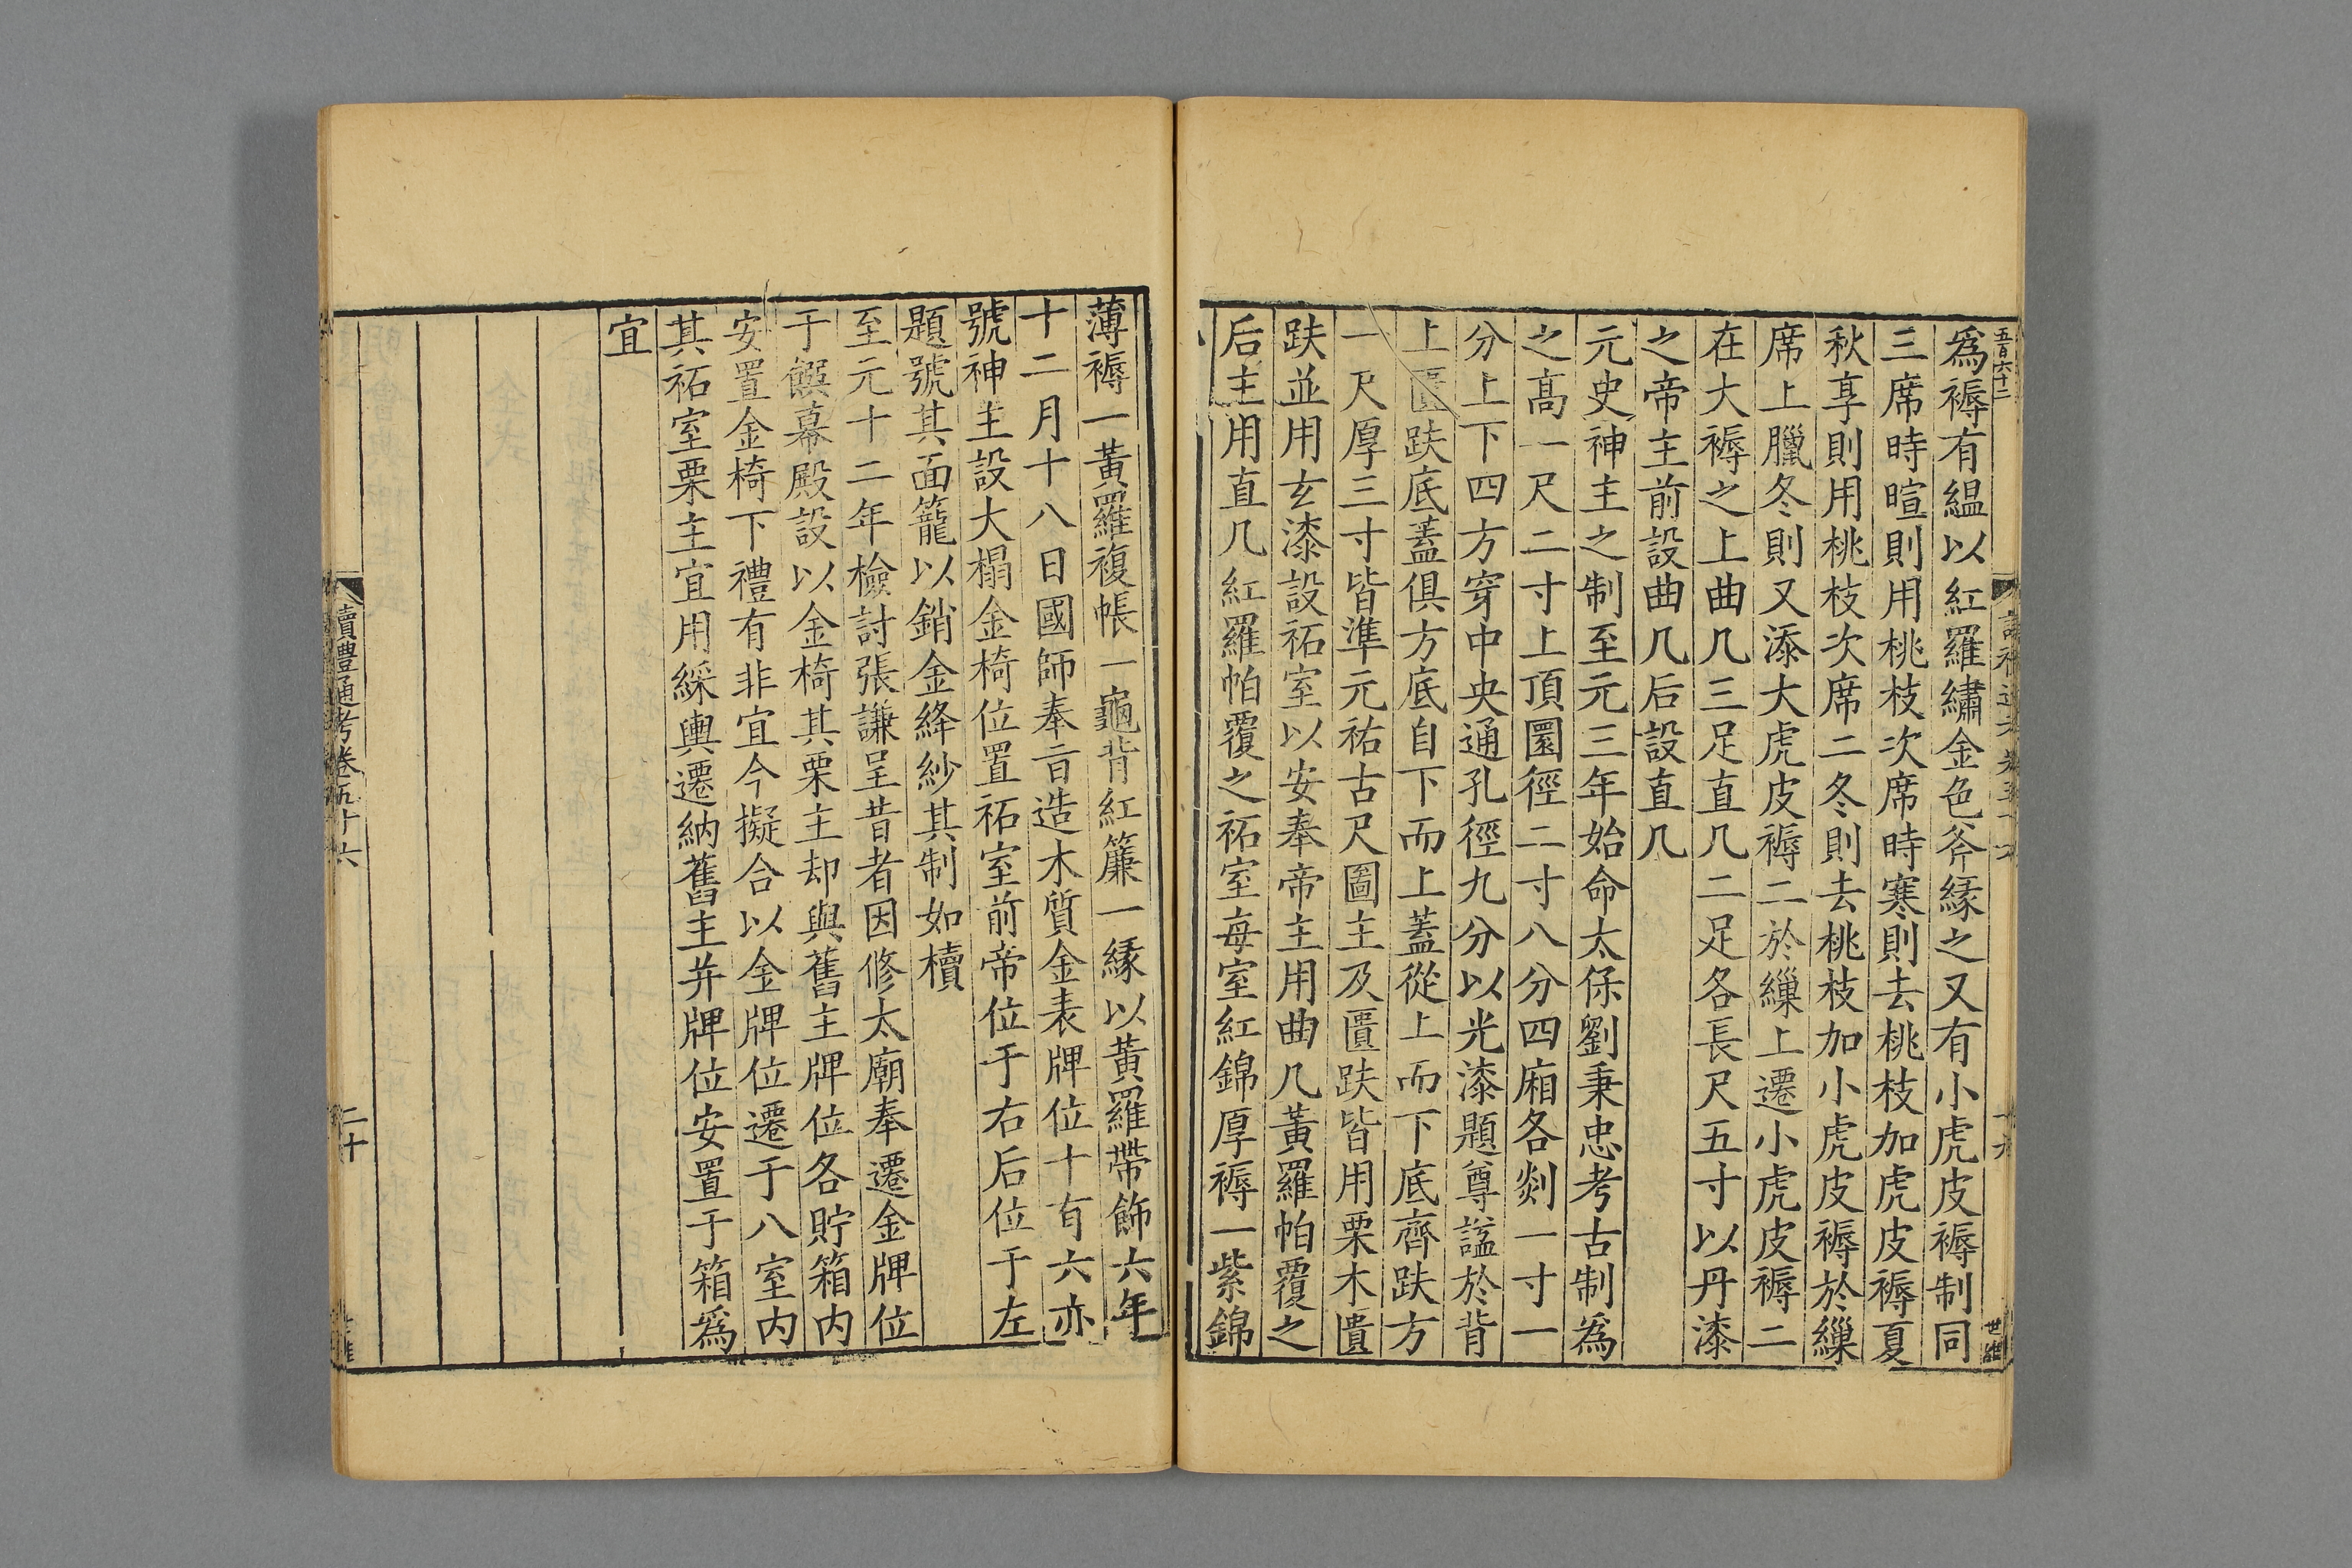 五百六十二
爲褥有緼以紅羅繡金色斧縁之又有小虎皮褥制同
三席時暄則用桃枝次席時寒則去桃枝加虎皮褥夏
秋享則用桃枝次席二冬則去桃枝加小虎皮褥於繅
席上臘冬則又添大虎皮褥二於繅上遷小虎皮褥二
在大褥之上曲几三足直几二足各長尺五寸以丹漆
之帝主前設曲几后設直几
元史神主之制至元三年始命太保劉秉忠考古制爲
之高一尺二寸上頂圜徑二寸八分四廂各剡一寸一
分上下四方穿中央通孔徑九分以光漆題尊諡於背
上匱趺底蓋俱方底自下而上蓋從上而下底齊趺方
一尺厚三寸皆準元祐古尺圖主及匱趺皆用栗木匱
趺並用玄漆設祏室以安奉帝主用曲几黃羅帕覆之
后主用直几紅羅帕覆之祏室毎室紅錦厚褥一紫錦
薄褥一黃羅複帳一龜背紅簾一縁以黃羅帶飾六年
十二月十八日國師奉㫖造木質金表牌位十有六亦
號神主設大榻金椅位置祏室前帝位于右后位于左
題號其面籠以銷金絳紗其制如櫝
至元十二年檢討張謙呈昔者因修太廟奉遷金牌位
于饌幕殿設以金椅其栗主却與舊主牌位各貯箱内
安置金椅下禮有非宜今擬合以金牌位遷于八室内
其祏室栗主宜用綵輿遷納舊主并牌位安置于箱爲
宜
讀禮通考卷五十六
二十